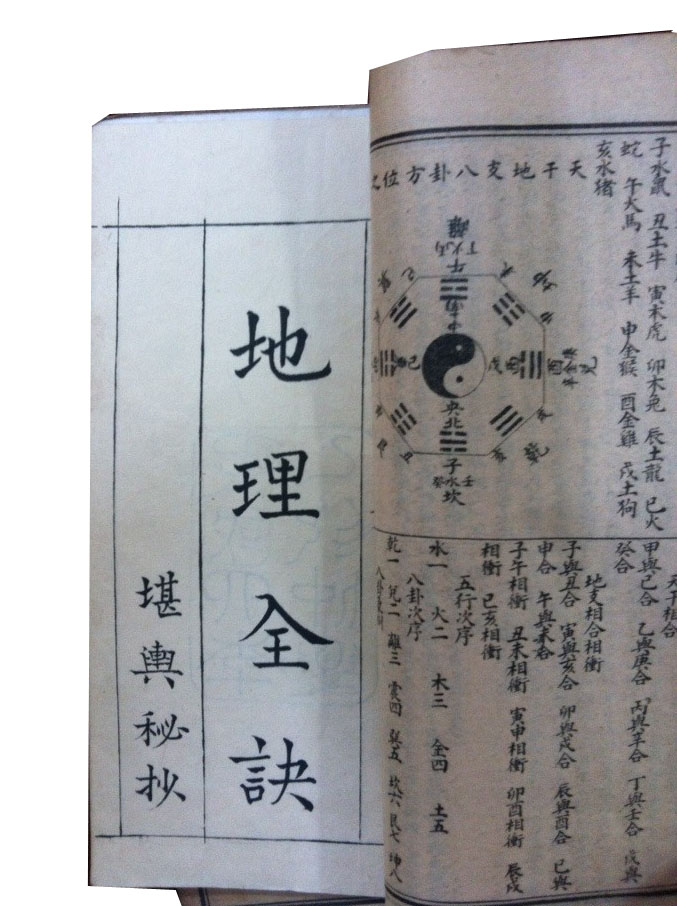 子水鼠 丑土牛 寅木虎 卯木兔 辰土龍 巳火
蛇 午火馬 未土羊 申金猴 酉金雞 戌土狗
亥水猪
天干地支八卦方位
離
丁火丙
午
南
中
央
北
子
癸水壬
坎
戊
己
西
酉
辛金庚
兌
乾
亥
天干相合
甲與己合 乙與庚合 丙與辛合 丁與壬合 戊與
癸合
地支相合相衝
子與丑合 寅與亥合 卯與戌合 辰與酉合 巳與
申合 午與未合
子午相衝 丑未相衝 寅申相衝 卯酉相衝 辰戌
相衝 巳亥相衝
五行次序
水一 火二 木三 金四 土五
八卦次序
乾一 兌二 離三 震四 巽五 坎六 艮七 坤八
地理全訣
堪輿秘抄